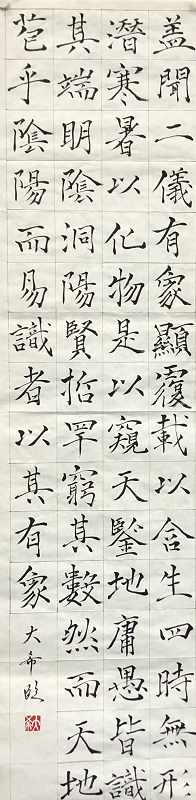 盖聞二儀有象顯覆載以含生四時無形
潛寒暑以化物是以窺天鑒地庸愚皆識
其端明陰洞陽賢哲罕窮其數然而天地
苞乎陰陽而易識者以其有象
大希